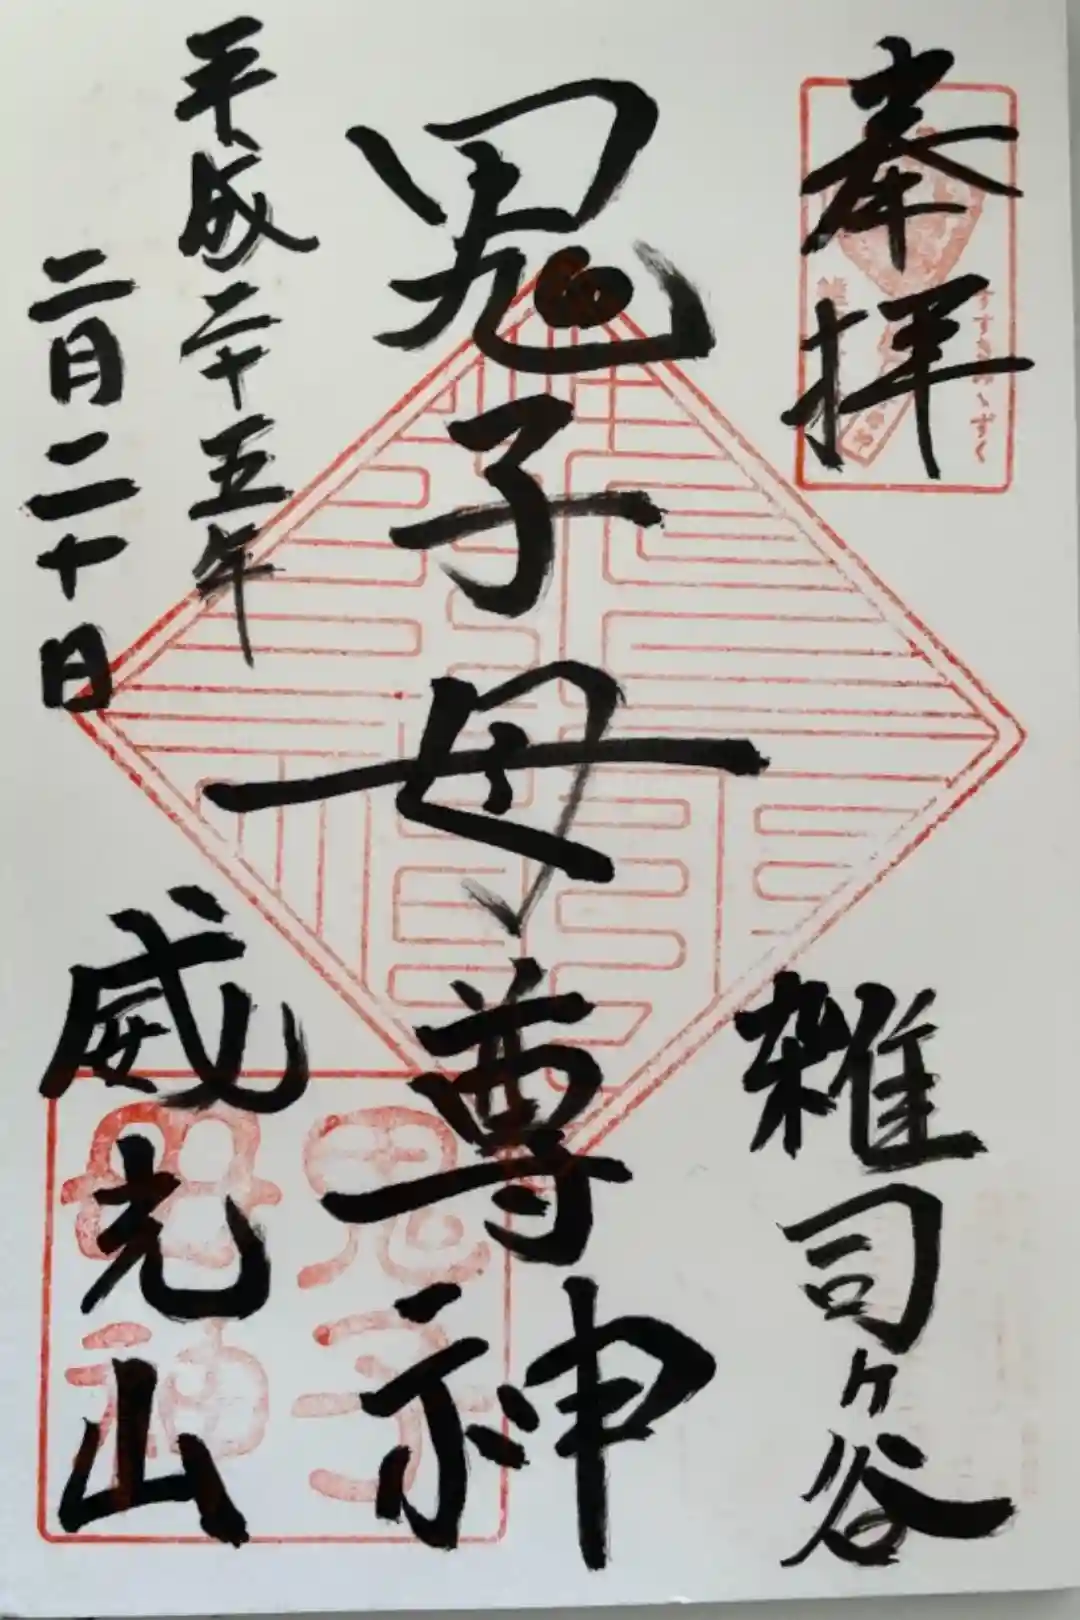 奉拝
すすきみゝずく
雑司ヶ谷
鬼子母尊神
平成二十五年
二月二十日
威光山
鬼子
母神